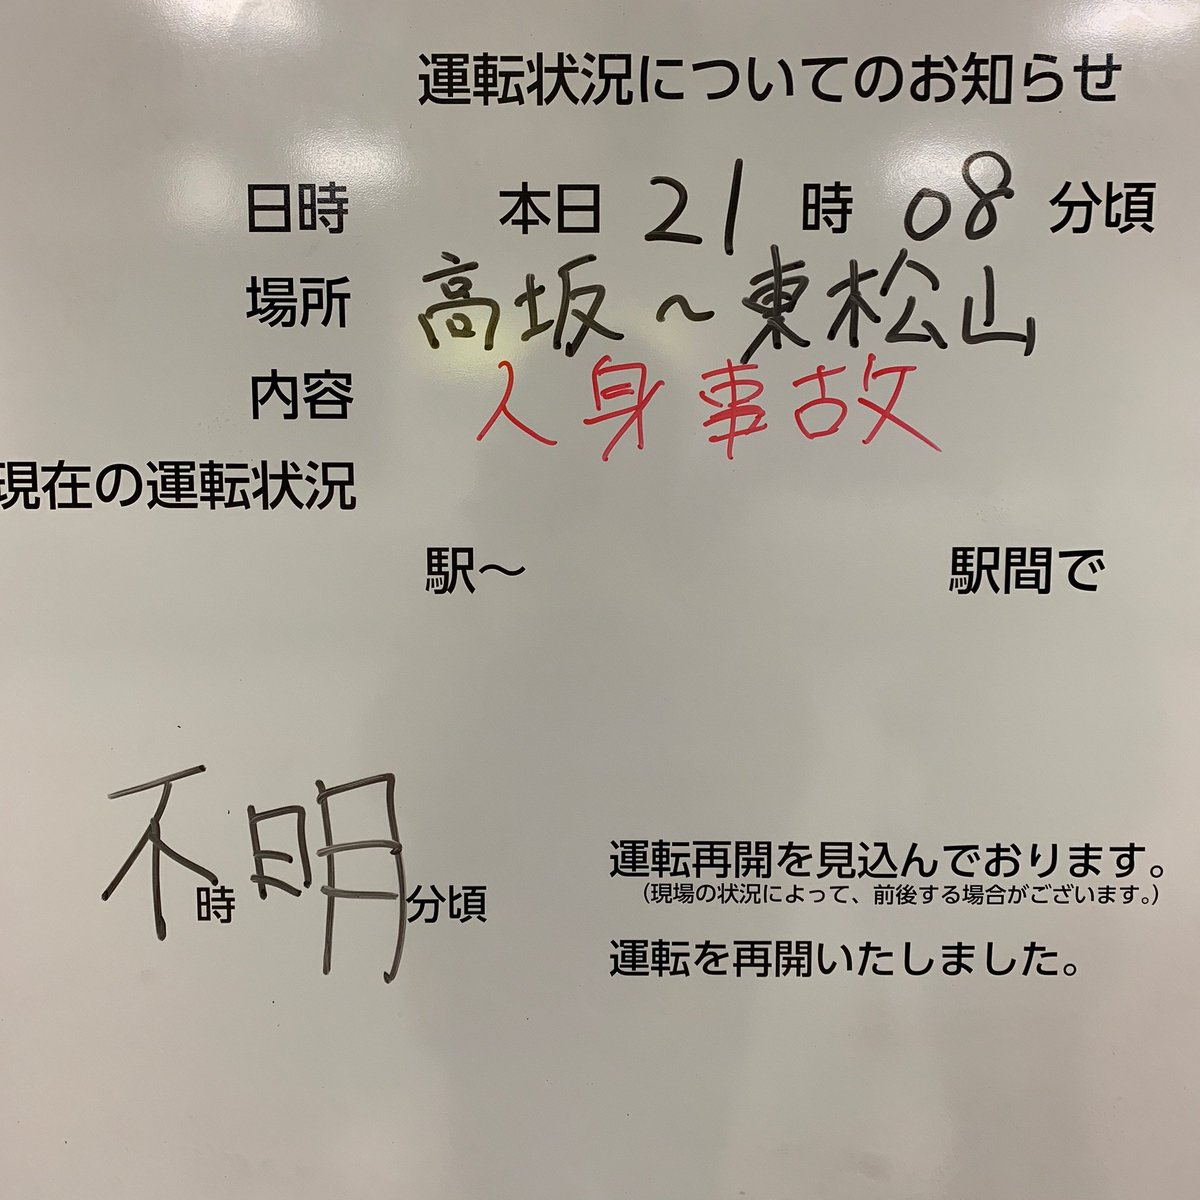 運転状況についてのお知らせ
日時 本日 21 時 08 分頃
場所 高坂～東松山
内容 人身事故
現在の運転状況
駅～ 駅間で
不明
時 分頃 運転再開を見込んでおります。
（現場の状況によって、前後する場合がございます。）
運転を再開いたしました。